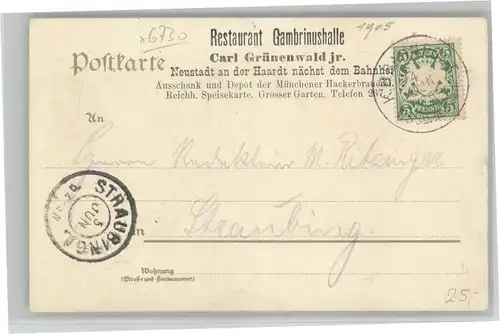 x6730
1905
Restaurant Gambrinushalle
Carl Grünenwald jr.
Postkarte
Neustadt an der Haardt nächst dem Bahnhof
Ausschank und Depot der Münchener Hackerbrauerei
Reichh. Speisekarte. Grosser Garten. Telefon 267.
5 5
PFENNIG
An
Herrn Redakteur M. Ritzinger
STRAUBING
5
JUN
in
Straubing
Wohnung
(Straße und Hausnummer)
25,-